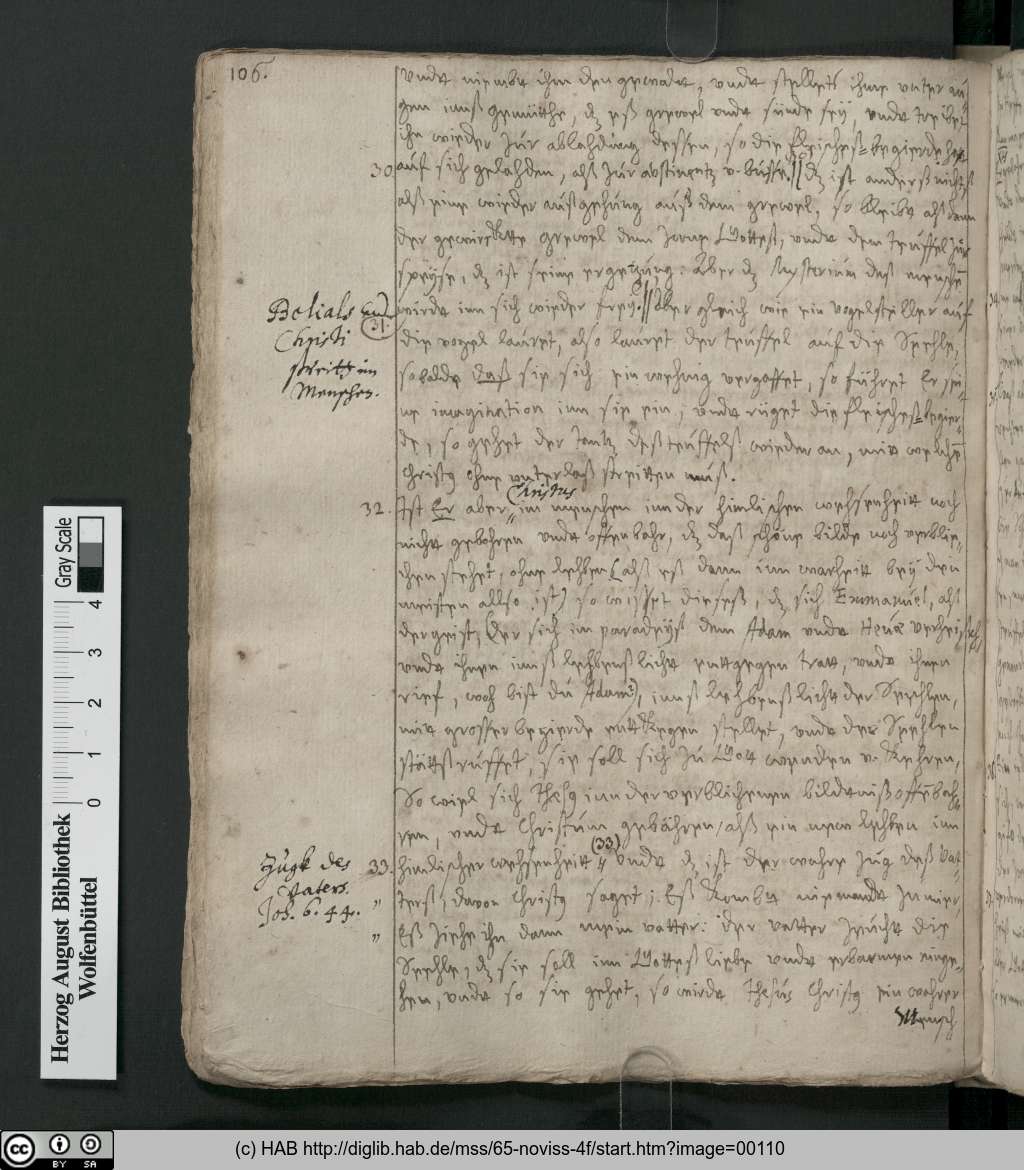 106.
vnndt nimbt ihm den gewalt, vnndt stellets ihme vnter au
gen inns gemütthe, dz eß grewel vnndt sünde seÿ, vnndt treibet
ihn wieder zur abladung dessen, so die fleisches=begierde hatt
30 auf sich geladen, alß zur abstinentz v. busse. // dz ist anderß nichts
alß eine wieder außgehung auß dem grewel, so bleibt alß dann
der gewirckte grewel dem Zorne Gotteß, vnndt dem teuffel zur
speÿse, dz ist seine ergetzung: Aber dz Mysterium deß menschen
Belials und Christi streitt im Menschen.
31. wirdt inn sich wieder freÿ. // Aber gleich wie ein vogelsteller auf
die vogel lauret, also lauret der teuffel auf die Seehle,
so balde daß sie sich ein wehnig vergaffet, so führet Er sei
ne imagination inn sie ein, vnndt rüget die fleisches=begier
de, so gehet der tantz deß teuffelß wieder an, mit welchem
Christq ohne vnterlaß streitten muß.
32. Ist Er aber Christus im menschen inn der himlischen wehsenheitt noch
nicht gebohren vnndt offenbahr, dz daß schöne bildt noch verblie-
chen stehet, ohne lehben (alß eß dann inn warheitt beÿ den
meisten allso ist) so wisset dieseß, dz sich Emmanuel, alß
der geist, (der sich im paradÿß dem Adam vnndt Hevæ verheissen,
vnndt ihnen inns lehbenß licht entgegen tratt, vnndt ihnen
rief, woh bist du Adam?), inns lehbenß licht der Seehlen,
mit grosser begierde enttkegen stellet, vnndt der Seehlen
stättß ruffet, sie soll sich zu Gott wenden v. kehren,
So wiel sich Jhesq inn der verblichenen bildtniß offenbah-
ren, vnndt Christum gebähren, alß ein new lehben inn
Zugk des Vaters. Joh. 6. 44.
33. himlischer wehsenheitt (33) " Vnndt dz ist der wahre zug deß Vat-
" terß, davon Christq saget; Eß kombt niemandt zu mir,
" Eß ziehe ihn dann mein vatter: der vatter zeucht die
Seehle, dz sie soll inn Gotteß liebe vnndt erbarmen einge-
hen, vnndt so sie gehet, so wirdt Jhesus Christq ein wahrer
Mensch
Herzog August Bibliothek
Wolfenbüttel
Gray Scale
0 1 2 3 4
cc BY SA
(c) HAB http://diglib.hab.de/mss/65-noviss-4f/start.htm?image=00110